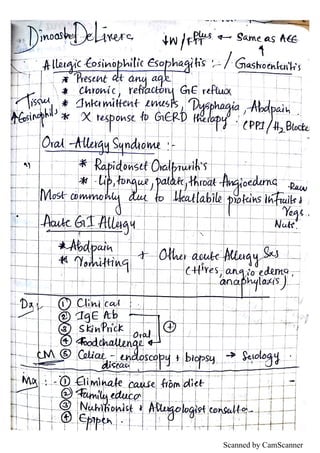 Dinoosha Delivera ↓W/FTT Plus ← Same as AEE
Allergic Eosinophilic Esophagitis :- / Gastroenteritis
* Present at any age
* Chronic, refractory GE reflux
Tissue Eosinophils * Intermittent emesis, Dysphagia, Abdpain
* X response to GERD therapy. (PPI/H2 Blocke
Oral - Allergy Syndrome :-
* Rapidonset Oralpruritis
* Lip, tongue, palate, throat Angioedema Raw
Most commonly due to Heatlabile proteins in Fruits &
Vegs.
Acute GI Allergy Nuts.
* Abdpain
* Vomitting + Other acute Allergy Sxs
(Hives, angio edema,
anaphylaxis)
Dx: ① Clinical
② IgE Ab
③ SkinPrick (+)
④ Oral foodchallenge
CM ⑤ Celiac disease - endoscopy + biopsy → Serology
Mx :- ① Eliminate cause from diet
② Family educa
③ Nutritionist & Allergologist consulta
④ Epipen
Scanned by CamScanner